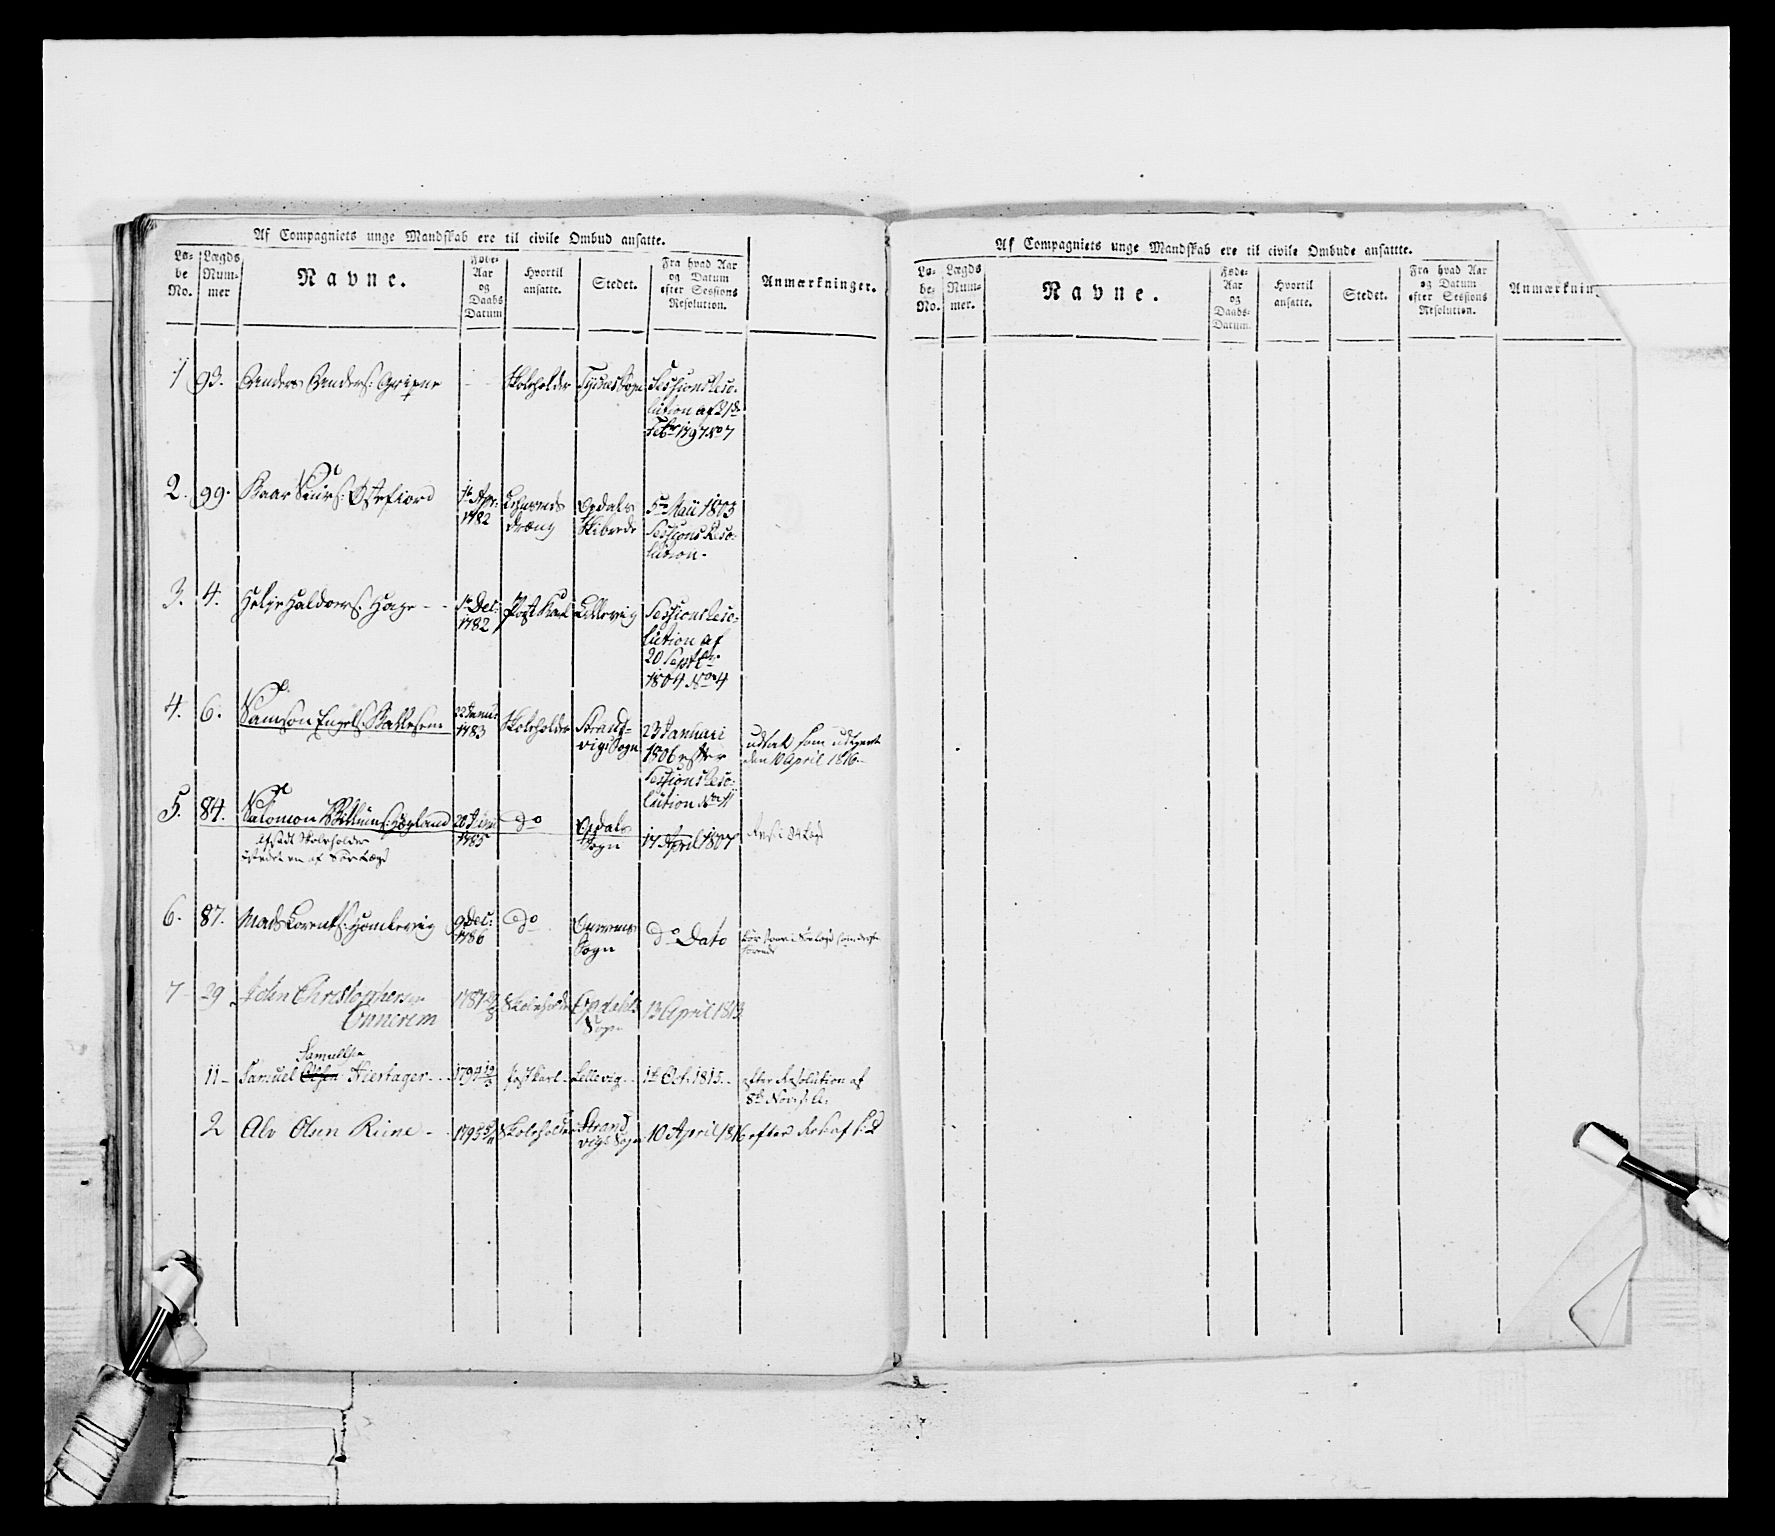 Af Compagniets unge Mandskab ere til civile Ombud ansatte.
Lo-
be
No.
Lægds
Num-
mer
Navne.
Føde-
Aar
og
Daabs
Datum
Hvortil
ansatte.
Stedet.
Fra hvad Aar
og Datum
efter Sessions
Resolution.
Anmærkninger.
1 93. Anders Anders: Gripne - - Skoleholder Tysnes Sogn Sessions Reso-
lution af 21de
Febr 1797 No 7
2. 99. Baar Siurs: Ostefiord 1te Apr: 1782 Lehnsmds Dreng Opdals Skibrede 5te Maii 1803
Sessions Reso-
lution.
3. 4. Helje Haldors: Hage - - 1te Dec: 1782 Post Karl Lillevig Sessions Reso-
lution af
20 Septbr
1804 No 4
4. 6. Samson Engels: 22 Janua: 1783 Skoleholder Strand-
vigs Sogn 23 Januari
1806 efter
Sessions Reso-
lution No 11
udtat som udtient
den 10 April 1816
5. 84. Salomon Hogland 20 1785 do Opdals
Sogn 17 April 1807
Skoleholder
af
6. 87. Mads Lorents: Homlevig 9 Dec: 1786 do
Sogn do Dato
7 29 John Christophersen
Onnerem 1787 Skoleholder Opdahls
Sogn 13 April 1813
Samuelsen
11 - Samuel Olsen Hiertager - - 1794 postkarl - Lillevig - 1te Oct. 1815 - efter Resolution af
8de Nov:
2 Alv Olsen Riine - - 1795 Skoleholder Strand
vigs Sogn 10 April 1816 efter Res af
Af Compagniets unge Mandskab ere til civile Ombude ansattte.
Lo-
be-
No.
Lægds
Num-
mer.
Navne.
Føde-
Aar
og
Daabs-
Datum.
Hvortil
ansatte.
Stedet.
Fra hvad Aar
og Datum
efter Sessions
Resolution.
Anmærknin